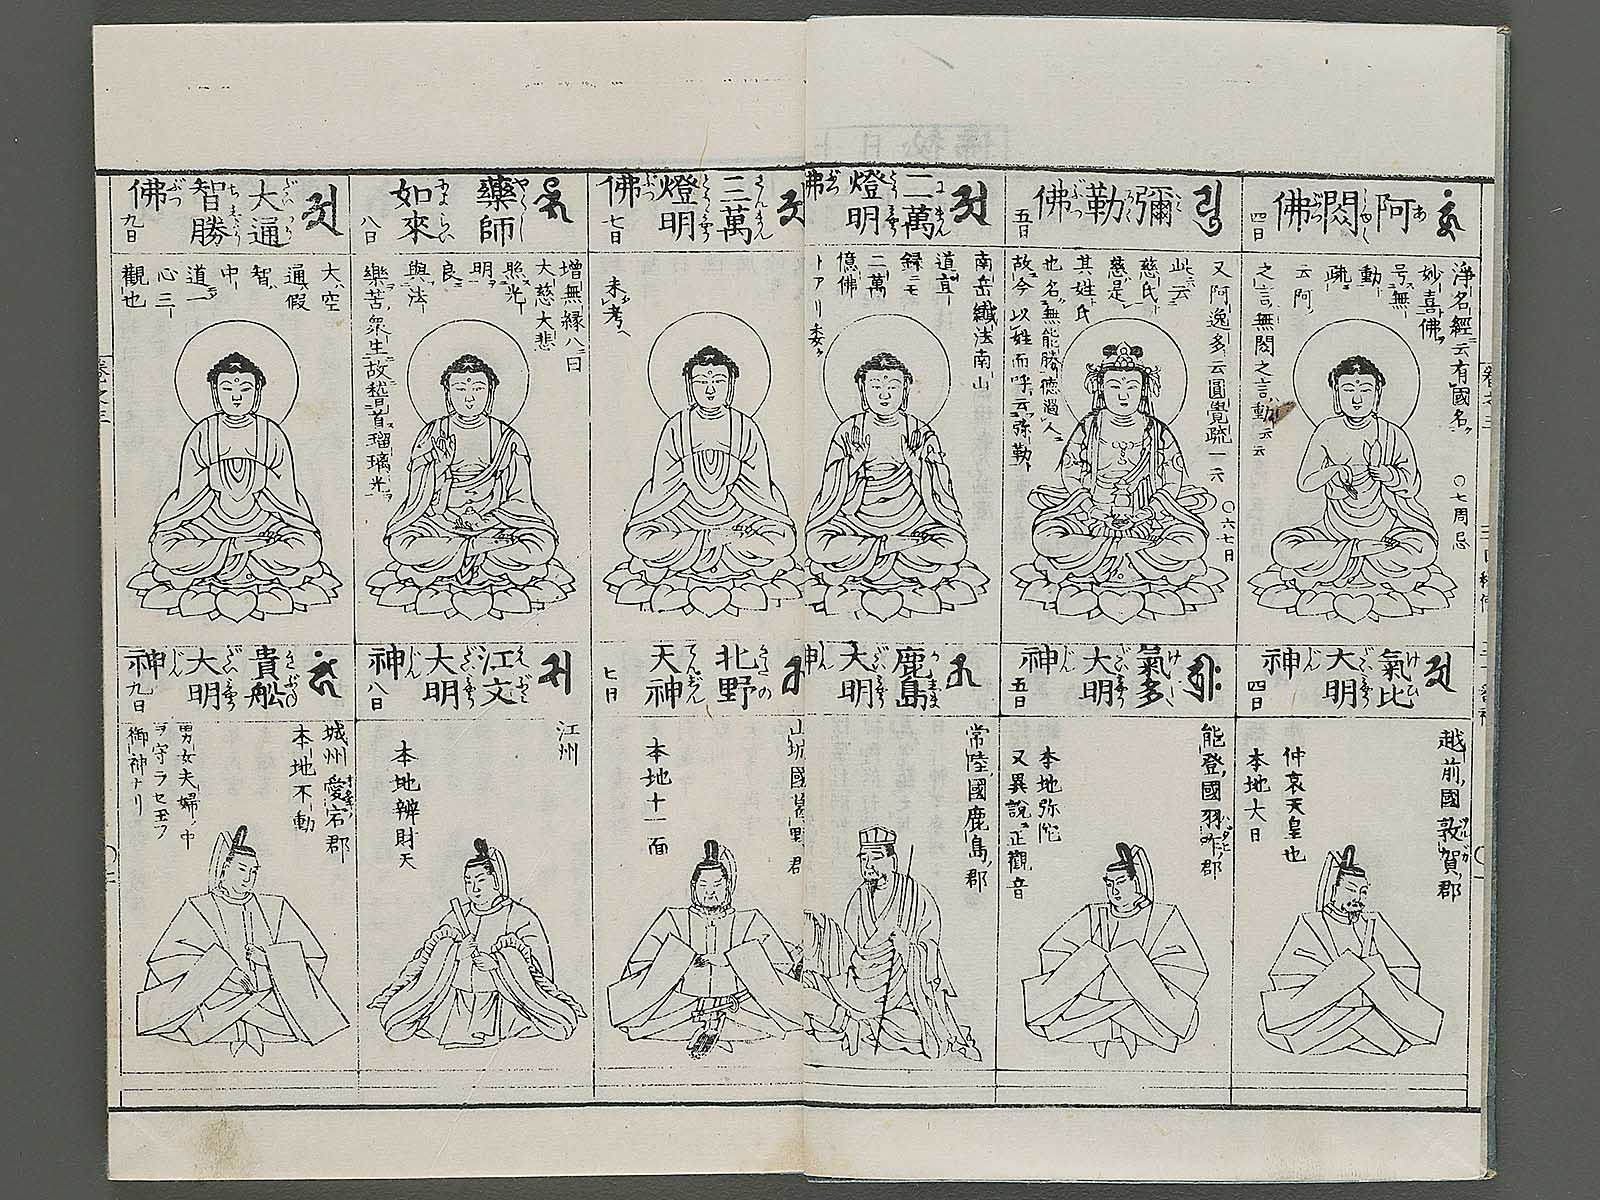 阿閦佛
四日
淨名經云有國名
妙喜佛
号無
動
疏
云阿
之言無閦之言動云云
〇七周忌
彌勒佛
五日
又阿逸多云圓覺疏一云
此云
慈氏
慈是
其姓氏
也名無能勝德過人
故今以姓而呼云弥勒
〇六七日
二萬燈明佛
南岳
道宣
録云
二萬
億佛
トアリ委
三萬燈明佛
七日
未考
藥師如來
八日
增無緣八日
大慈大悲
照光
明
良
與法
樂苦衆生故稽首瑠璃光
大通智勝佛
九日
大空
通假
智
中
道一
心三
觀也
氣比大明神
四日
越前國敦賀郡
仲哀天皇也
本地大日
氣多大明神
五日
能登國羽咋郡
本地弥陀
又異說正觀音
鹿島大明神
常陸國鹿島郡
北野天神
七日
本地十一面
江文大明神
八日
江州
本地辨財天
貴舩大明神
九日
城州愛宕郡
本地不動
男女夫婦ノ中
ヲ守ラセ玉フ
御神ナリ